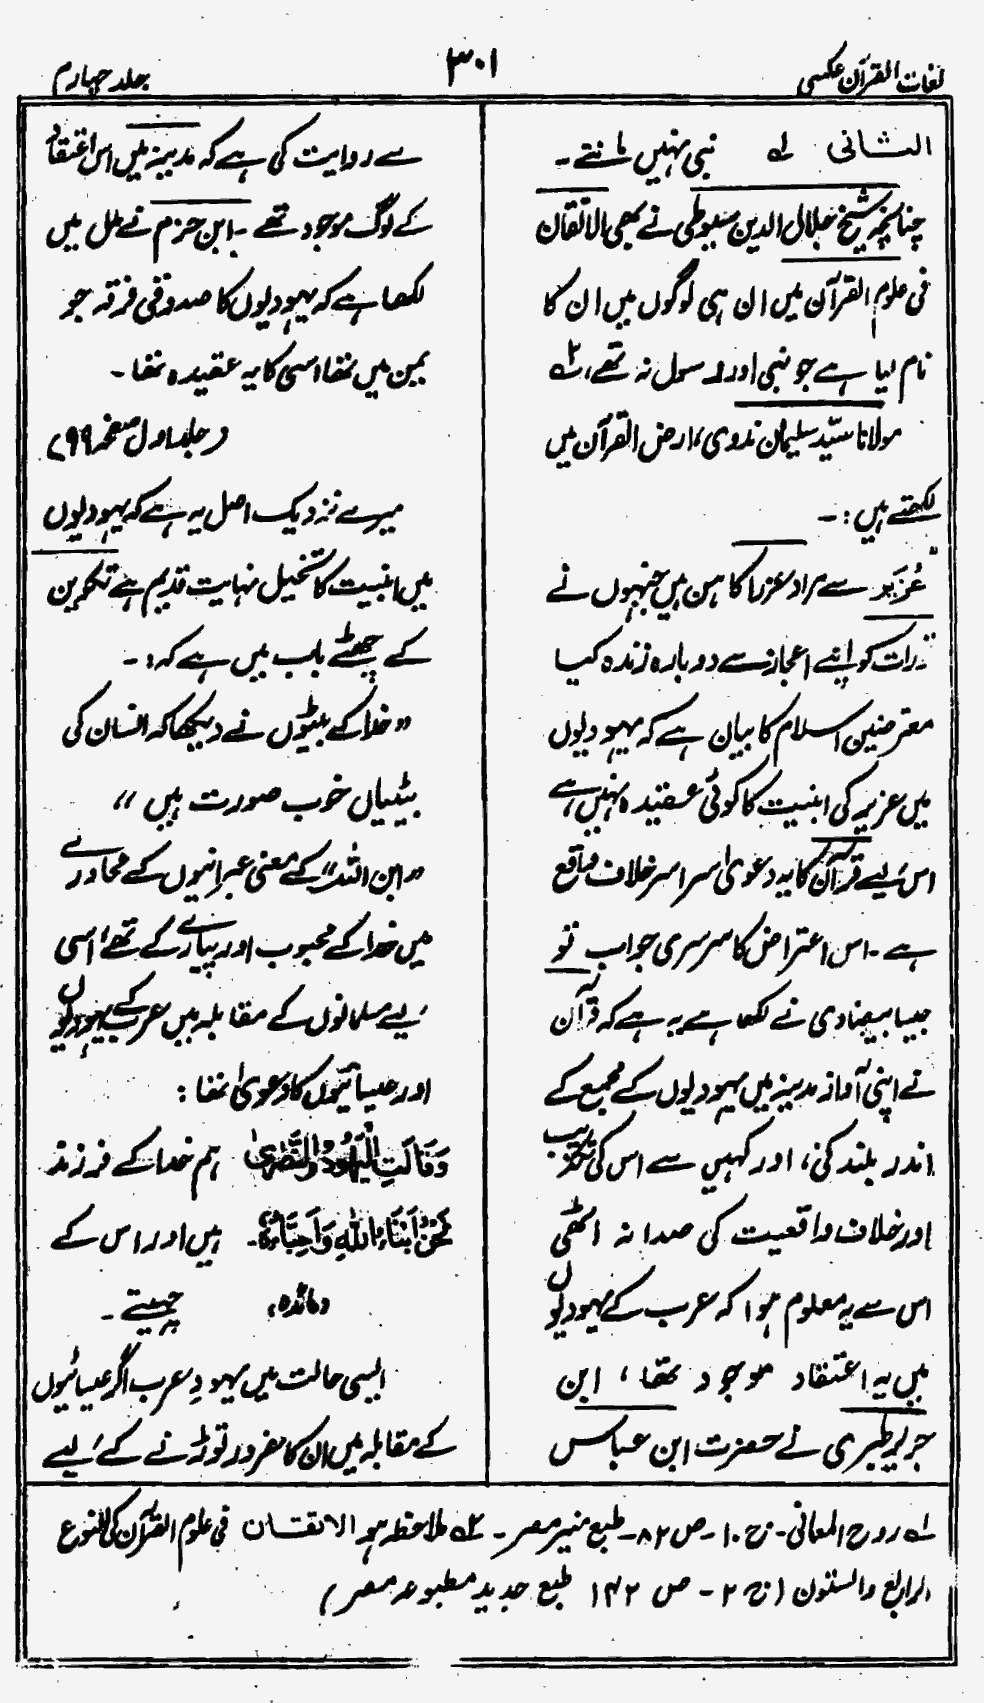 لغات القرآن عکسی
۳۰۱
جلد چہارم
الشانی لہ نبی نہیں مانتے ۔
چنانچہ شیخ جلال الدین سیوطی نے بھی الاتقان
فی علوم القرآن میں ان ہی لوگوں میں ان کا
نام لیا ہے جو نبی اور رسول نہ تھے، ۲ہ
مولانا سید سلیمان ندوی، ارض القرآن میں
لکھتے ہیں : ۔
"عُزیر سے مراد عزرا کاہن ہیں جنہوں نے
تورات کو اپنے اعجاز سے دوبارہ زندہ کیا
معترضین اسلام کا بیان ہے کہ یہودیوں
میں عزیر کی ابنیت کا کوئی عقیدہ نہیں ہے
اس لیے قرآن کا یہ دعویٰ سراسر خلاف واقع
ہے ۔ اس اعتراض کا سرسری جواب تو
جیسا بیضاوی نے لکھا ہے یہ ہے کہ قرآن
نے اپنی آواز مدینہ میں یہودیوں کے مجمع کے
اندر بلند کی، اور کہیں سے اس کی تکذیب
اور خلاف واقعیت کی صدا نہ اٹھی
اس سے یہ معلوم ہوا کہ عرب کے یہودیوں
میں یہ اعتقاد موجود تھا ، ابن
جریر طبری نے حضرت ابن عباس
سے روایت کی ہے کہ مدینہ میں اس اعتقاد
کے لوگ موجود تھے ۔ ابن حزم نے ملل میں
لکھا ہے کہ یہودیوں کا صدوقی فرقہ جو
یمن میں تھا اسی کا یہ عقیدہ تھا ۔
(جلد اول صفحہ ۹۹)
میرے نزدیک اصل یہ ہے کہ یہودیوں
میں ابنیت کا تخیل نہایت قدیم ہے تکوین
کے چھٹے باب میں ہے کہ : ۔
"خدا کے بیٹوں نے دیکھا کہ انسان کی
بیٹیاں خوب صورت ہیں "
"ابن اللہ" کے معنی عبرانیوں کے محاورے
میں خدا کے محبوب اور پیارے کے تھے، اسی
لیے مسلمانوں کے مقابلہ میں عرب کے یہودیوں
اور عیسائیوں کا دعویٰ تھا :
وَقَالَتِ الْيَهُودُ وَالنَّصٰرٰى ہم خدا کے فرزند
نَحْنُ اَبْنَاءُ اللهِ وَاَحِبَّاءُهٗ ۔ ہیں اور اس کے
(مائدہ) چہیتے ۔
ایسی حالت میں یہودِ عرب اگر عیسائیوں
کے مقابلہ میں ان کا غرور توڑنے کے لیے
لہ روح المعانی ۔ ج ۱۰ ۔ ص ۸۲ ۔ طبع منیر مصر ۔ ۲ہ ملاحظہ ہو الاتقان فی علوم القرآن کی النوع
الرابع والستون (ج ۲ ۔ ص ۱۴۲ طبع جدید مطبوعہ مصر)